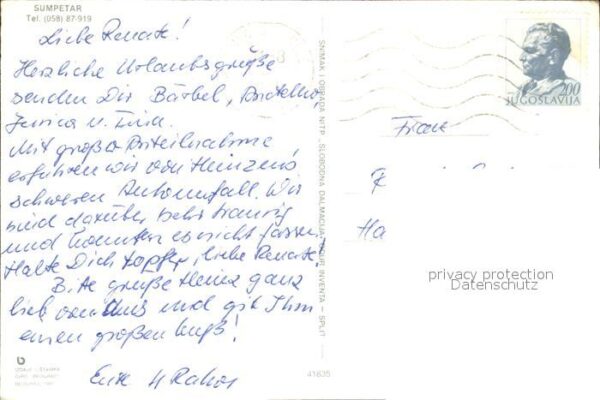 SUMPETAR
Tel. (058) 87-919
Liebe Renate!
Herzliche Urlaubsgrüße
senden Dir Bärbel,
u.
Mit großer Anteilnahme
erfuhren wir von Heinzens
schweren Autounfall. Wir
sind darüber sehr traurig
und konnten es nicht fassen.
Halte Dich tapfer, liebe Renate!
Bitte grüße Heinz ganz
lieb von uns und gib Ihm
einen großen Kuß!
SNIMAK I OBRADA NITP „SLOBODNA DALMACIJA" INVENTA – SPLIT
41835
200
JUGOSLAVIJA
Frau
Ha
privacy protection
Datenschutz